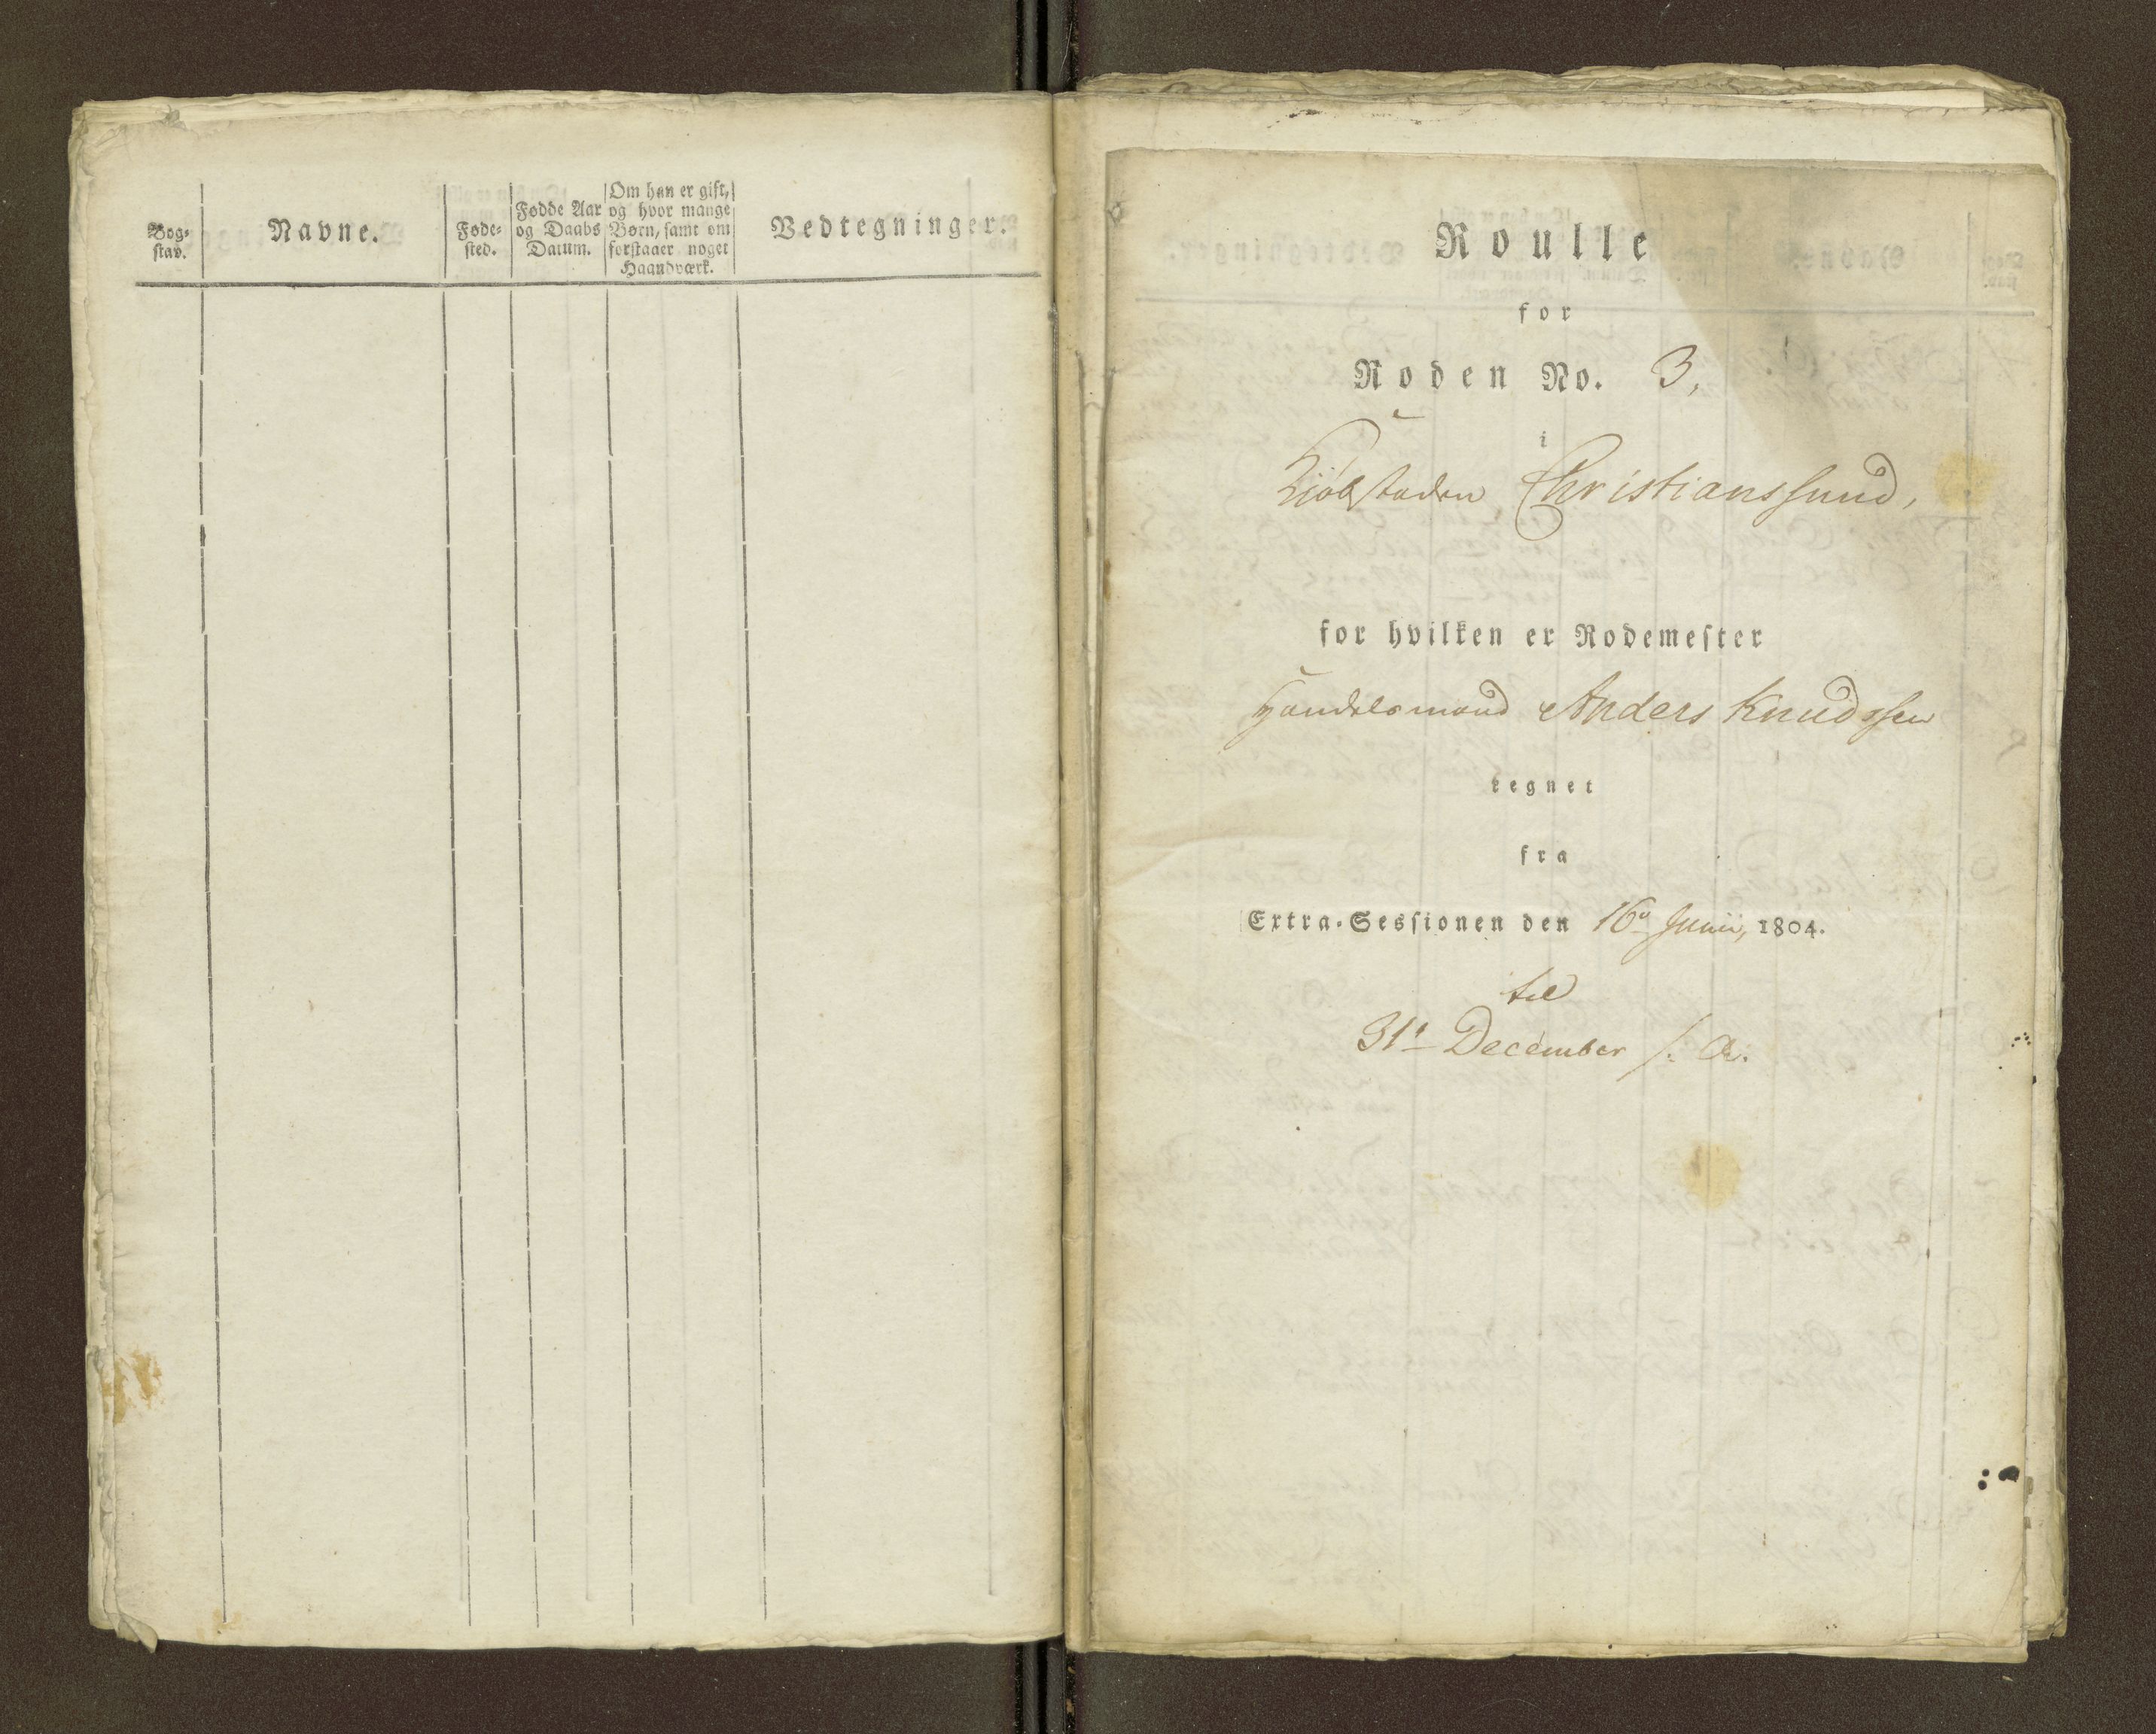 Bog-
stav.
Navne.
Føde-
sted.
Fødde Aar
og Daabs
Datum.
Om han er gift,
og hvor mange
Børn, samt om
forstaaer noget
Haandværk.
Vedtegninger.
Roulle
for
Roden No. 3,
i
Kiøbstaden Christianssund,
for hvilken er Rodemester
Handelsmand Anders Knudssen
tegnet
fra
Extra-Sessionen den 16d Junii, 1804.
til
31t December s: A: